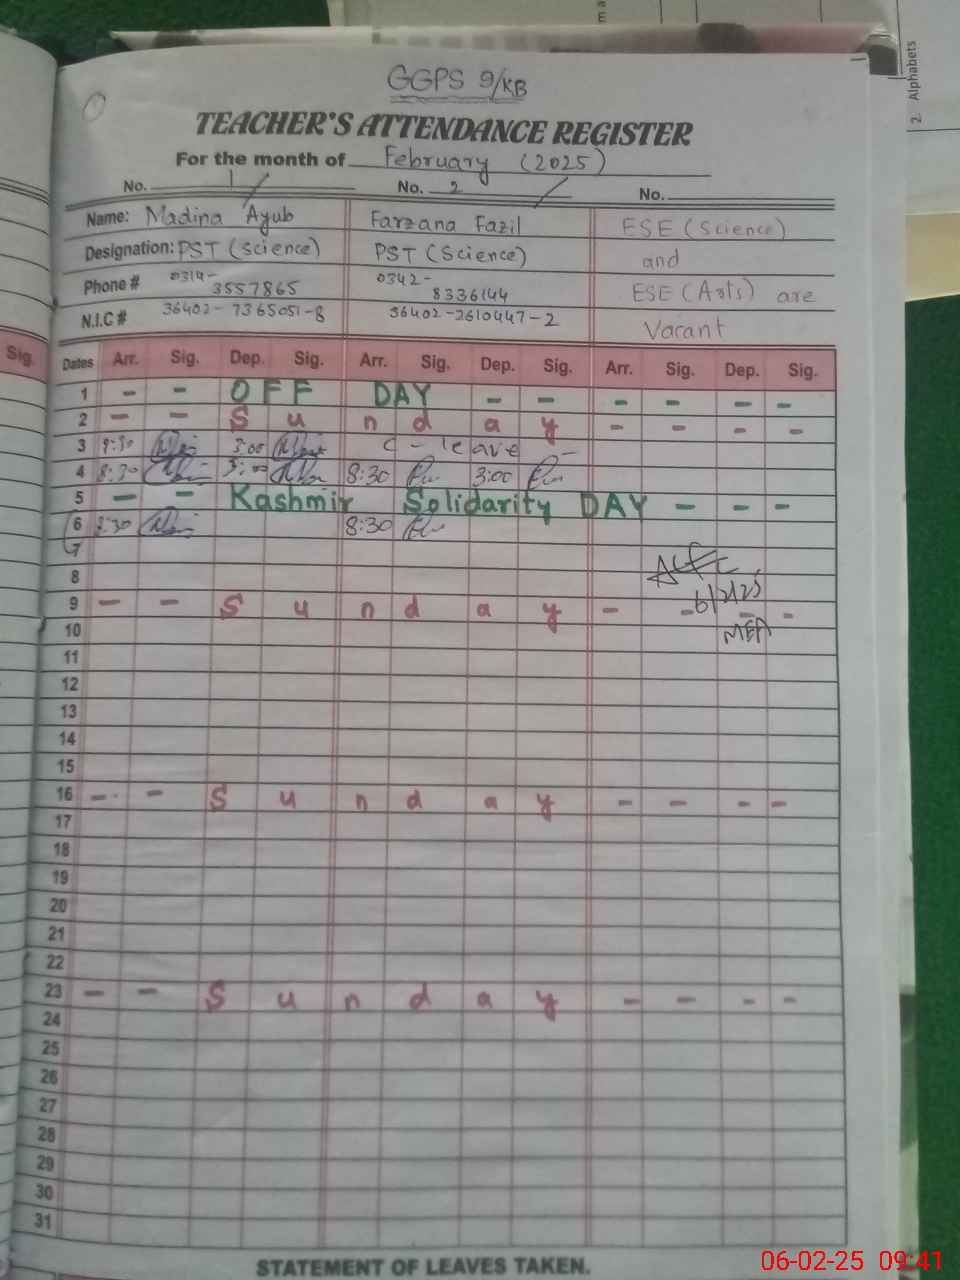 GGPS 9/KB
TEACHER'S ATTENDANCE REGISTER
For the month of February (2025)
No. 1 No. 2 No.
Name: Madina Ayub Farzana Fazil ESE (Science)
Designation: PST (Science) PST (Science) and
Phone # 0314-3557865 0342-8336144 ESE (Arts) are
N.I.C # 36402-7365051-8 36402-2610447-2 Vacant
Sig.
Dates Arr. Sig. Dep. Sig. Arr. Sig. Dep. Sig. Arr. Sig. Dep. Sig.
1 - - OFF DAY - - - - - -
2 - - Sunday - - - -
3 8:30 3:00 C-leave -
4 8:30 3:00 8:30 3:00
5 - - Kashmir Solidarity DAY - - -
6 8:30 8:30
7
8
9 - - Sunday - - - -
6/2/25
MEA
10
11
12
13
14
15
16 - - Sunday - - - -
17
18
19
20
21
22
23 - - Sunday - - - -
24
25
26
27
28
29
30
31
STATEMENT OF LEAVES TAKEN.
2. Alphabets
06-02-25 09:41